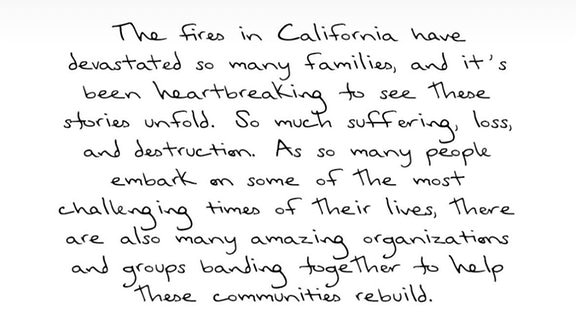 The fires in California have
devastated so many families, and it's
been heartbreaking to see these
stories unfold. So much suffering, loss,
and destruction. As so many people
embark on some of the most
challenging times of their lives, there
are also many amazing organizations
and groups banding together to help
these communities rebuild.